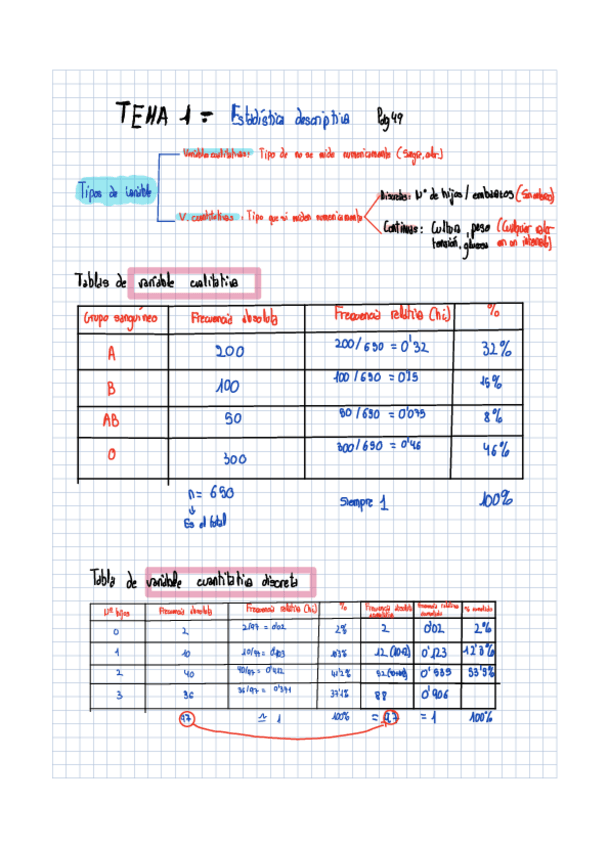 TEMA 1 = Estadística descriptiva Pág 49
Variable cualitativas: Tipo de no se mide numericamente (Sangre,
Tipos de variable
Discretas: Nº de hijos / embarazos (Sin
V. cuantitativas: Tipo que si miden numericamente
Continuas: Cultura, peso (Cualquier valor
tensión, glucosa en un intervalo)
Tablas de variable cualitativa
Grupo sanguíneo Frecuencia absoluta Frecuencia relativa (hi) %
A 200 200/650 = 0'32 32%
B 100 100/650 = 0'15 15%
AB 50 50/650 = 0'075 8%
O 300 300/650 = 0'46 46%
n = 650 Siempre 1 100%
Es el total
Tabla de variable cuantitativa discreta
Nº hijos Frecuencia absoluta Frecuencia relativa (hi) % Frecuencia absoluta acumulada Frecuencia relativa acumulada % acumulado
0 2 2/97 = 0'02 2% 2 0'02 2%
1 10 10/97 = 12 (10+2) 0'123 12'3%
2 40 40/97 = 0'412 41'2% 52 0'535 53'5%
3 36 36/97 = 0'371 37'1% 88 0'906
97 ≃ 1 100% = 97 = 1 100%